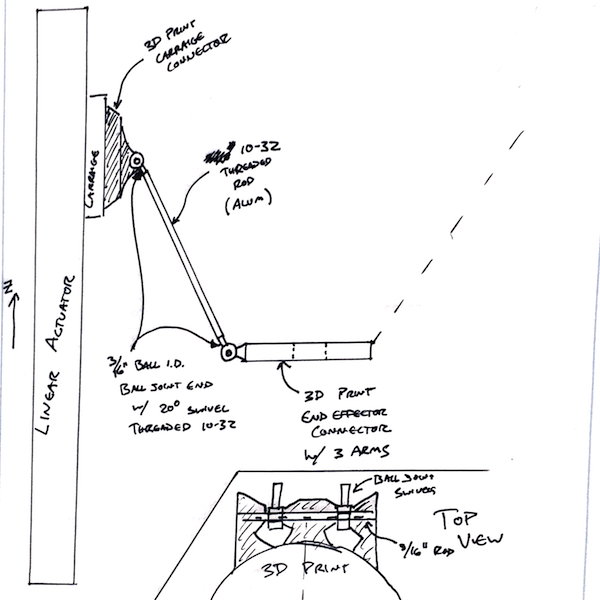 3D PRINT
CARRAIGE
CONNECTOR
10-32
THREADED
ROD
(ALUM)
CARRAIGE
Z
LINEAR ACTUATOR
3/16" BALL I.D.
BALL JOINT END
W/ 20° SWIVEL
THREADED 10-32
3D PRINT
END EFFECTOR
CONNECTOR
W/ 3 ARMS
BALL JOINT
SWIVELS
TOP
VIEW
3/16" ROD
3D PRINT